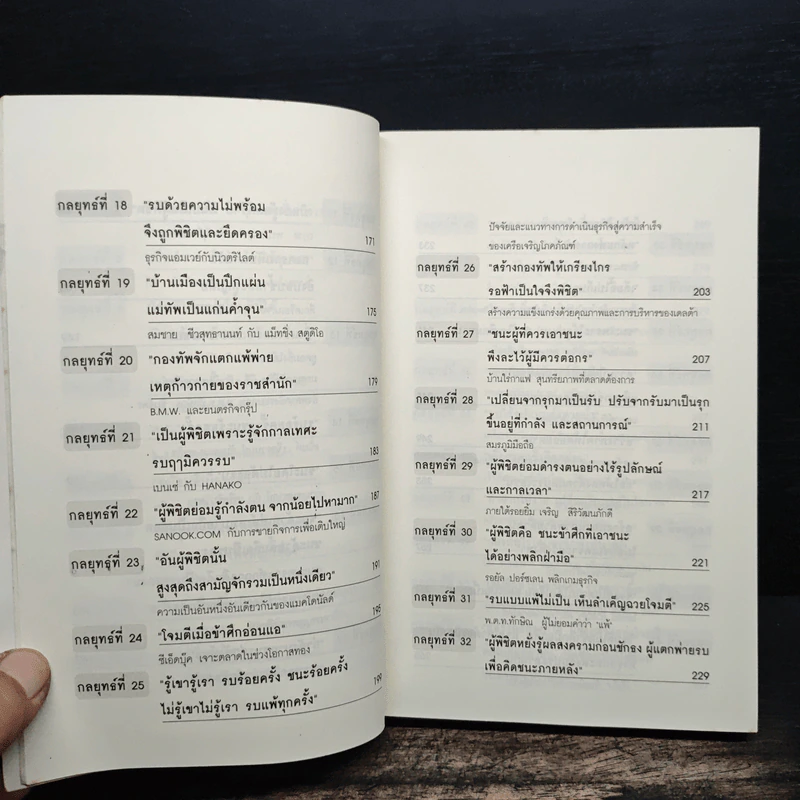 กลยุทธ์ที่ 18 "รบด้วยความไม่พร้อม
จึงถูกพิชิตและยึดครอง" 171
ธุรกิจแอมเวย์กับนิวตริไลต์
กลยุทธ์ที่ 19 "บ้านเมืองเป็นปึกแผ่น
แม่ทัพเป็นแก่นค้ำจุน" 175
สมชาย ชีวสุทธานนท์ กับ แม็ทชิ่ง สตูดิโอ
กลยุทธ์ที่ 20 "กองทัพจักแตกแพ้พ่าย
เหตุก้าวก่ายของราชสำนัก" 179
B.M.W. และยนตรกิจกรุ๊ป
กลยุทธ์ที่ 21 "เป็นผู้พิชิตเพราะรู้จักกาลเทศะ
รบฤามิควรรบ" 183
เบนเซ่ กับ HANAKO
กลยุทธ์ที่ 22 "ผู้พิชิตย่อมรู้กำลังตน จากน้อยไปหามาก" 187
SANOOK.COM กับการขายกิจการเพื่อเติบใหญ่
กลยุทธ์ที่ 23 "อันผู้พิชิตนั้น
สูงสุดถึงสามัญจักรวมเป็นหนึ่งเดียว" 191
ความเป็นอันหนึ่งอันเดียวกันของแมคโดนัลด์
กลยุทธ์ที่ 24 "โจมตีเมื่อข้าศึกอ่อนแอ" 195
ซีเอ็ดบุ๊ค เจาะตลาดในช่วงโอกาสทอง
กลยุทธ์ที่ 25 "รู้เขารู้เรา รบร้อยครั้ง ชนะร้อยครั้ง
ไม่รู้เขาไม่รู้เรา รบแพ้ทุกครั้ง" 199
ปัจจัยและแนวทางการดำเนินธุรกิจสู่ความสำเร็จ
ของเครือเจริญโภคภัณฑ์
กลยุทธ์ที่ 26 "สร้างกองทัพให้เกรียงไกร
รอฟ้าเป็นใจจึงพิชิต" 203
สร้างความแข็งแกร่งด้วยคุณภาพและการบริหารของเดลต้า
กลยุทธ์ที่ 27 "ชนะผู้ที่ควรเอาชนะ
พึงละไว้ผู้มีควรต่อกร" 207
บ้านไร่กาแฟ สุนทรียภาพที่ตลาดต้องการ
กลยุทธ์ที่ 28 "เปลี่ยนจากรุกมาเป็นรับ ปรับจากรับมาเป็นรุก
ขึ้นอยู่ที่กำลัง และสถานการณ์" 211
สมรภูมิมือถือ
กลยุทธ์ที่ 29 "ผู้พิชิตย่อมดำรงตนอย่างไร้รูปลักษณ์
และกาลเวลา" 217
ภายใต้รอยยิ้ม เจริญ สิริวัฒนภักดี
กลยุทธ์ที่ 30 "ผู้พิชิตคือ ชนะข้าศึกที่เอาชนะ
ได้อย่างพลิกฝ่ามือ" 221
รอยัล ปอร์ซเลน พลิกเกมธุรกิจ
กลยุทธ์ที่ 31 "รบแบบแพ้ไม่เป็น เห็นล้ำเค็ญฉวยโจมตี" 225
พ.ต.ท.ทักษิณ ผู้ไม่ยอมคำว่า 'แพ้'
กลยุทธ์ที่ 32 "ผู้พิชิตหยั่งรู้ผลสงครามก่อนชักธง ผู้แตกพ่ายรบ
เพื่อคิดชนะภายหลัง" 229